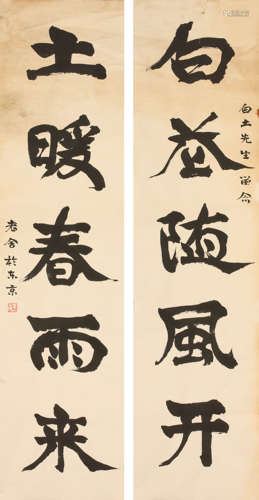 白随風开
白土先生留念
土暖春雨来
老舍於东京